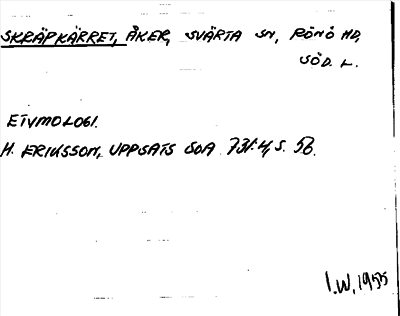 SKRÄPKÄRRET, ÅKER, SVÄRTA SN, RÖNÖ HD,
SÖD. L.
ETYMOLOGI.
H. ERIKSSON, UPPSATS SOA 731:4, S. 58.
I.W. 1955